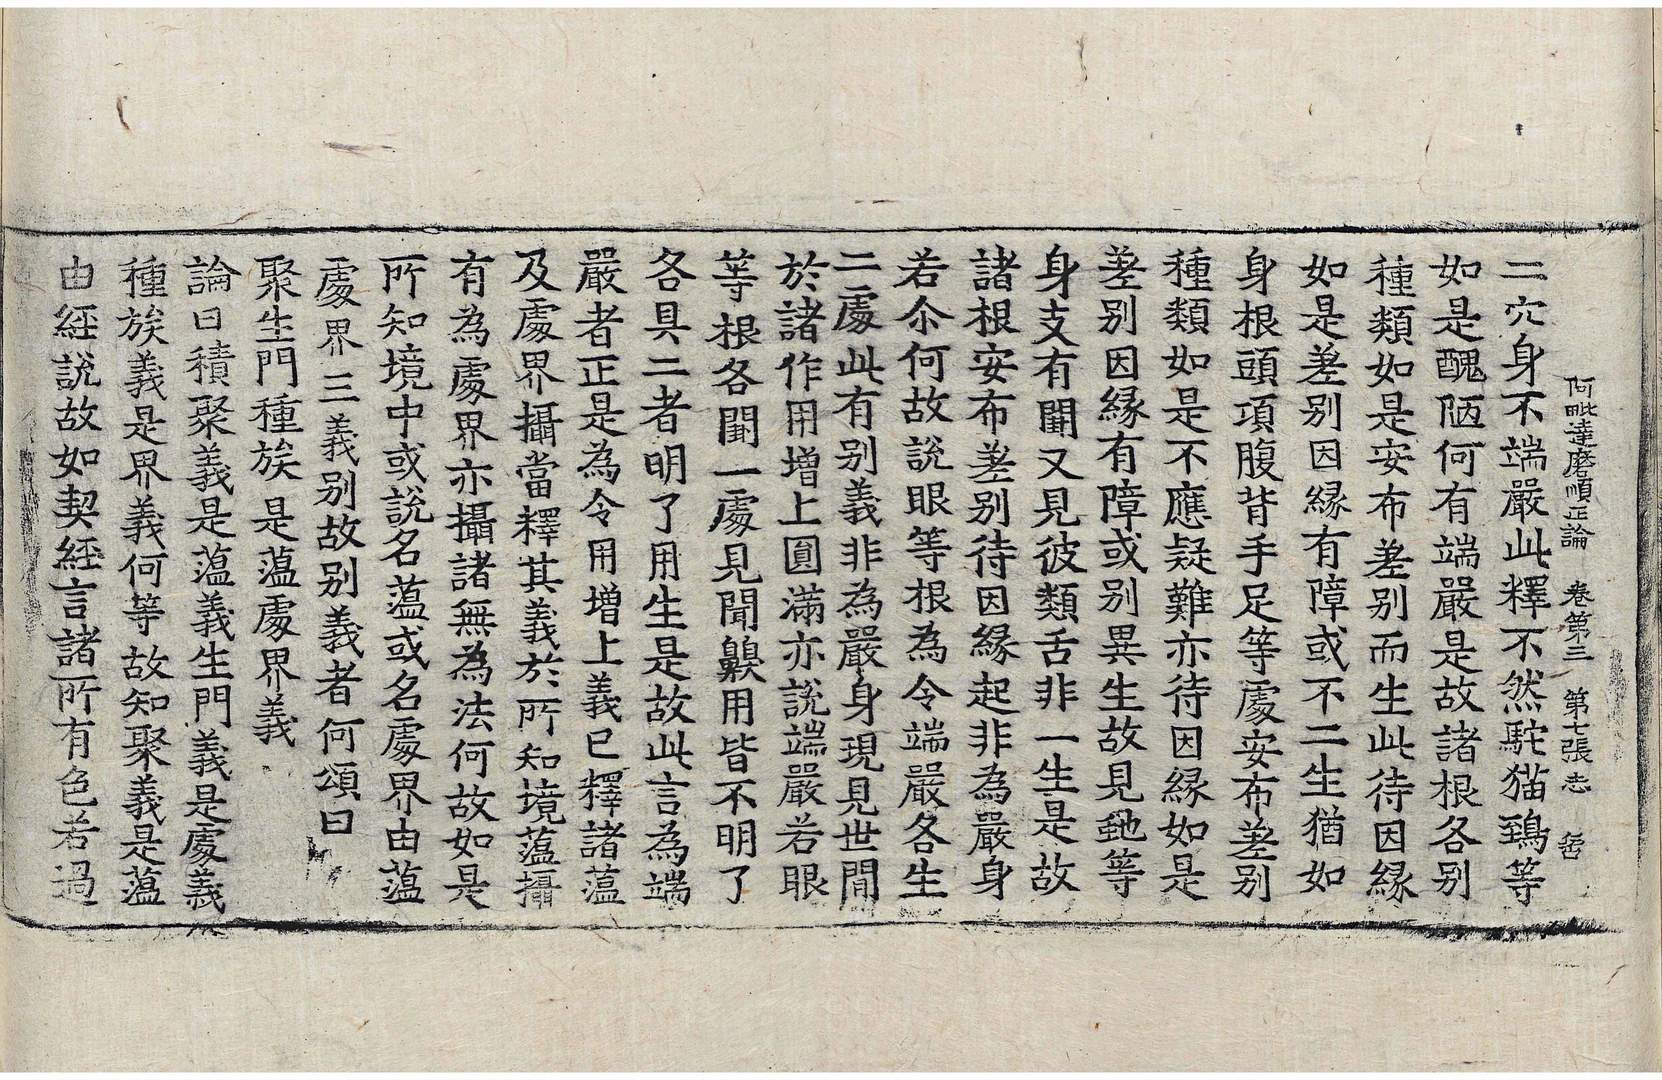 阿毗達磨順正論 卷第三 第七張 志
二穴身不端嚴此釋不然駝猫鵄等
如是醜陋何有端嚴是故諸根各別
種類如是安布差別而生此待因縁
如是差別因縁有障或不二生猶如
身根頭項腹背手足等處安布差別
種類如是不應疑難亦待因縁如是
差別因縁有障或別異生故見虵等
身支有闕又見彼類舌非一生是故
諸根安布差別待因縁起非為嚴身
若尒何故說眼等根為令端嚴各生
二處此有別義非為嚴身現見世間
於諸作用增上圓滿亦說端嚴若眼
等根各闕一處見聞齅用皆不明了
各具二者明了用生是故此言為端
嚴者正是為令用增上義已釋諸蕰
及處界攝當釋其義於所知境蕰攝
有為處界亦攝諸無為法何故如是
所知境中或說名蕰或名處界由蕰
處界三義別故別義者何頌曰
聚生門種族 是蕰處界義
論曰積聚義是蕰義生門義是處義
種族義是界義何等故知聚義是蕰
由經說故如契經言諸所有色若過